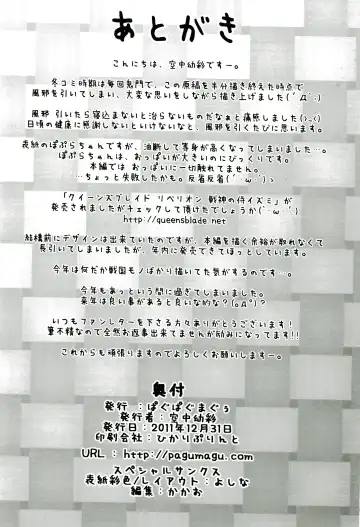 あとがき
こんにちは、空中幼彩ですー。
冬コミ時期は毎回鬼門で、この原稿を半分描き終えた時点で
風邪を引いてしまい、大変な思いをしながら描き上げました(´Д`;)
風邪 引いたら寝込まないと治らないものだなぁと痛感しました(>_<)
日頃の健康に感謝しないといけないなと、風邪を引くたびに思います。
表紙のぽぷらちゃんですが、油断して等身が高くなってしまいました…。
ぽぷらちゃんは、おっぱいが大きいのにびっくりです。
本編では おっぱいに一切触れてません。
…ちょっと失敗したかも。反省反省(´･ω･`)
「クイーンズブレイド リベリオン 戦神の侍イズミ」が
発売されましたがチェックして頂けたでしょうか(´･ω･`)
http://queensblade.net
結構前にデザインは出来ていたのですが、本編を描く余裕が取れなくて
長引いてしまいましたが、年内に発売できてほっとしています。
今年は何だか戦国モノばかり描いてた気がするのです…。
今年もあっという間に過ぎてしまいました。
来年は良い事があると良いな的な？(o´Д`)?
いつもファンレターを下さる方々ありがとうございます!
筆不精なので全然お返事出来てませんが励みになってます!!
これからも頑張りますのでよろしくお願いしますー。
奥付
発行 : ぱぐぱぐまぐぅ
発行者 : 空中幼彩
発行日 : 2011年12月31日
印刷会社 : ひかりぷりんと
URL : http://pagumagu.com
スペシャルサンクス
表紙彩色/レイアウト : よしな
編集 : かかお